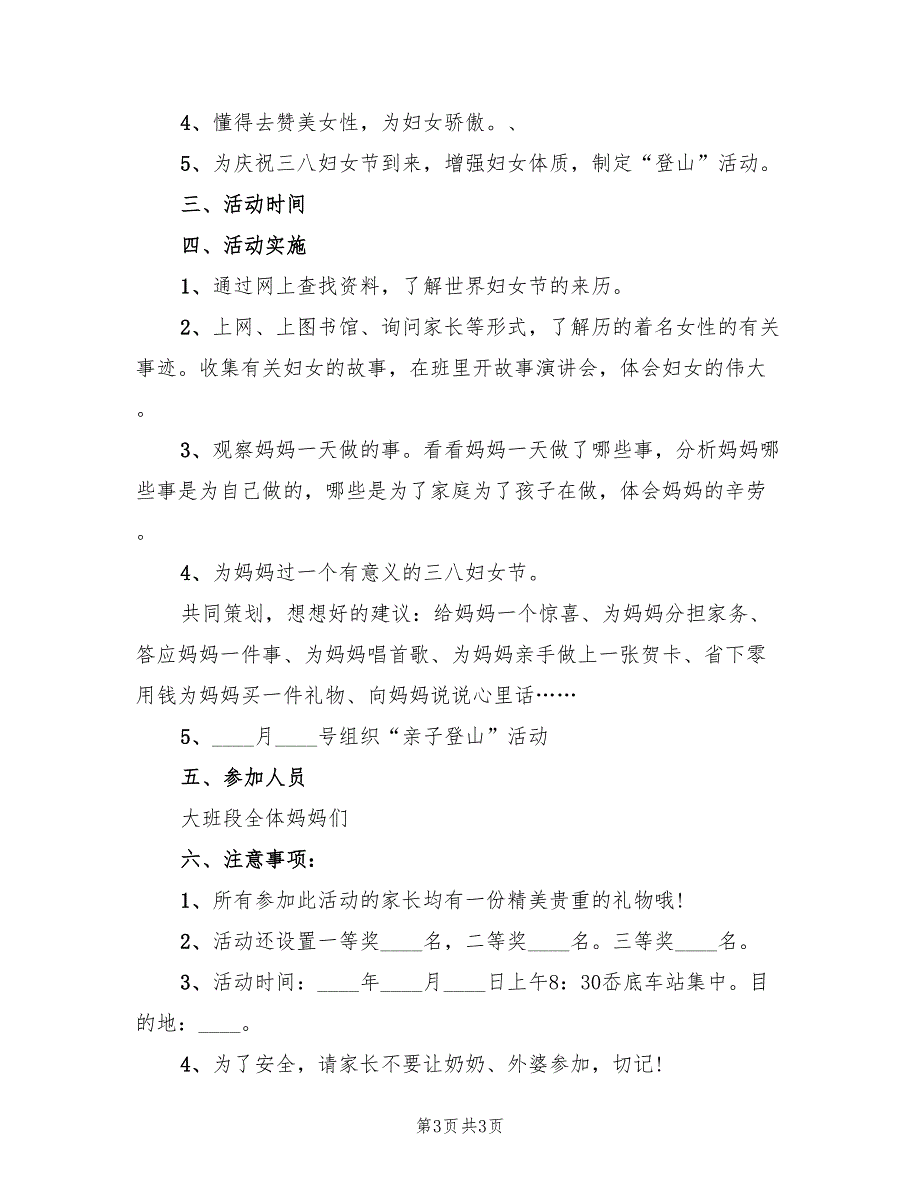 4、懂得去赞美女性，为妇女骄傲。、
5、为庆祝三八妇女节到来，增强妇女体质，制定“登山”活动。
三、活动时间
四、活动实施
1、通过网上查找资料，了解世界妇女节的来历。
2、上网、上图书馆、询问家长等形式，了解历的着名女性的有关
事迹。收集有关妇女的故事，在班里开故事演讲会，体会妇女的伟大
。
3、观察妈妈一天做的事。看看妈妈一天做了哪些事，分析妈妈哪
些事是为自己做的，哪些是为了家庭为了孩子在做，体会妈妈的辛劳
。
4、为妈妈过一个有意义的三八妇女节。
共同策划，想想好的建议：给妈妈一个惊喜、为妈妈分担家务、
答应妈妈一件事、为妈妈唱首歌、为妈妈亲手做上一张贺卡、省下零
用钱为妈妈买一件礼物、向妈妈说说心里话……
5、____月____号组织“亲子登山”活动
五、参加人员
大班段全体妈妈们
六、注意事项：
1、所有参加此活动的家长均有一份精美贵重的礼物哦!
2、活动还设置一等奖____名，二等奖____名。三等奖____名。
3、活动时间：____年____月____日上午8：30岙底车站集中。目
的地：____。
4、为了安全，请家长不要让奶奶、外婆参加，切记!
第3页 共3页